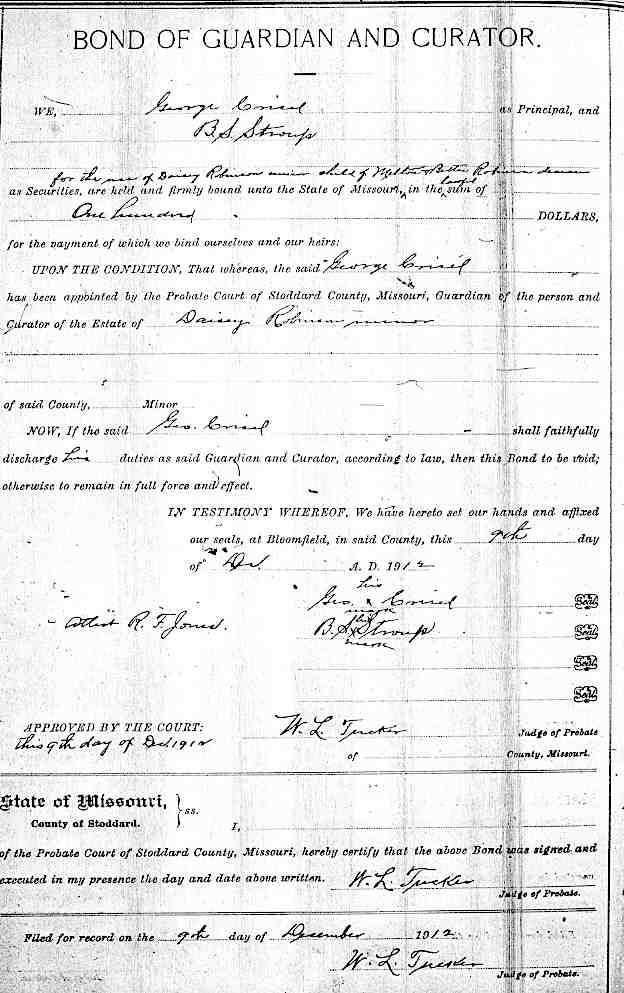 BOND OF GUARDIAN AND CURATOR.
WE, George Crisel as Principal, and
B. S. Stroup
for the use of Daisy Robinson minor child of Robinson
as Securities, are held and firmly bound unto the State of Missouri, in the sum of
One hundred DOLLARS,
for the payment of which we bind ourselves and our heirs:
UPON THE CONDITION, That whereas, the said George Crisel
has been appointed by the Probate Court of Stoddard County, Missouri, Guardian of the person and
Curator of the Estate of Daisey Robinson minor
of said County, Minor
NOW, If the said Geo. Crisel shall faithfully
discharge his duties as said Guardian and Curator, according to law, then this Bond to be void;
otherwise to remain in full force and effect.
IN TESTIMONY WHEREOF, We have hereto set our hands and affixed
our seals, at Bloomfield, in said County, this 9th day
of Dec. A. D. 1912
his
Geo. x Crisel Seal
mark
his
Attest R. F. Jones. B. S. x Stroup Seal
mark
Seal
Seal
APPROVED BY THE COURT: W. L. Tucker Judge of Probate
this 9th day of Dec. 1912
of County, Missouri.
State of Missouri,
County of Stoddard. } ss. I,
of the Probate Court of Stoddard County, Missouri, hereby certify that the above Bond was signed and
executed in my presence the day and date above written. W. L. Tucker
Judge of Probate.
Filed for record on the 9th day of December 1912
W. L. Tucker
Judge of Probate.